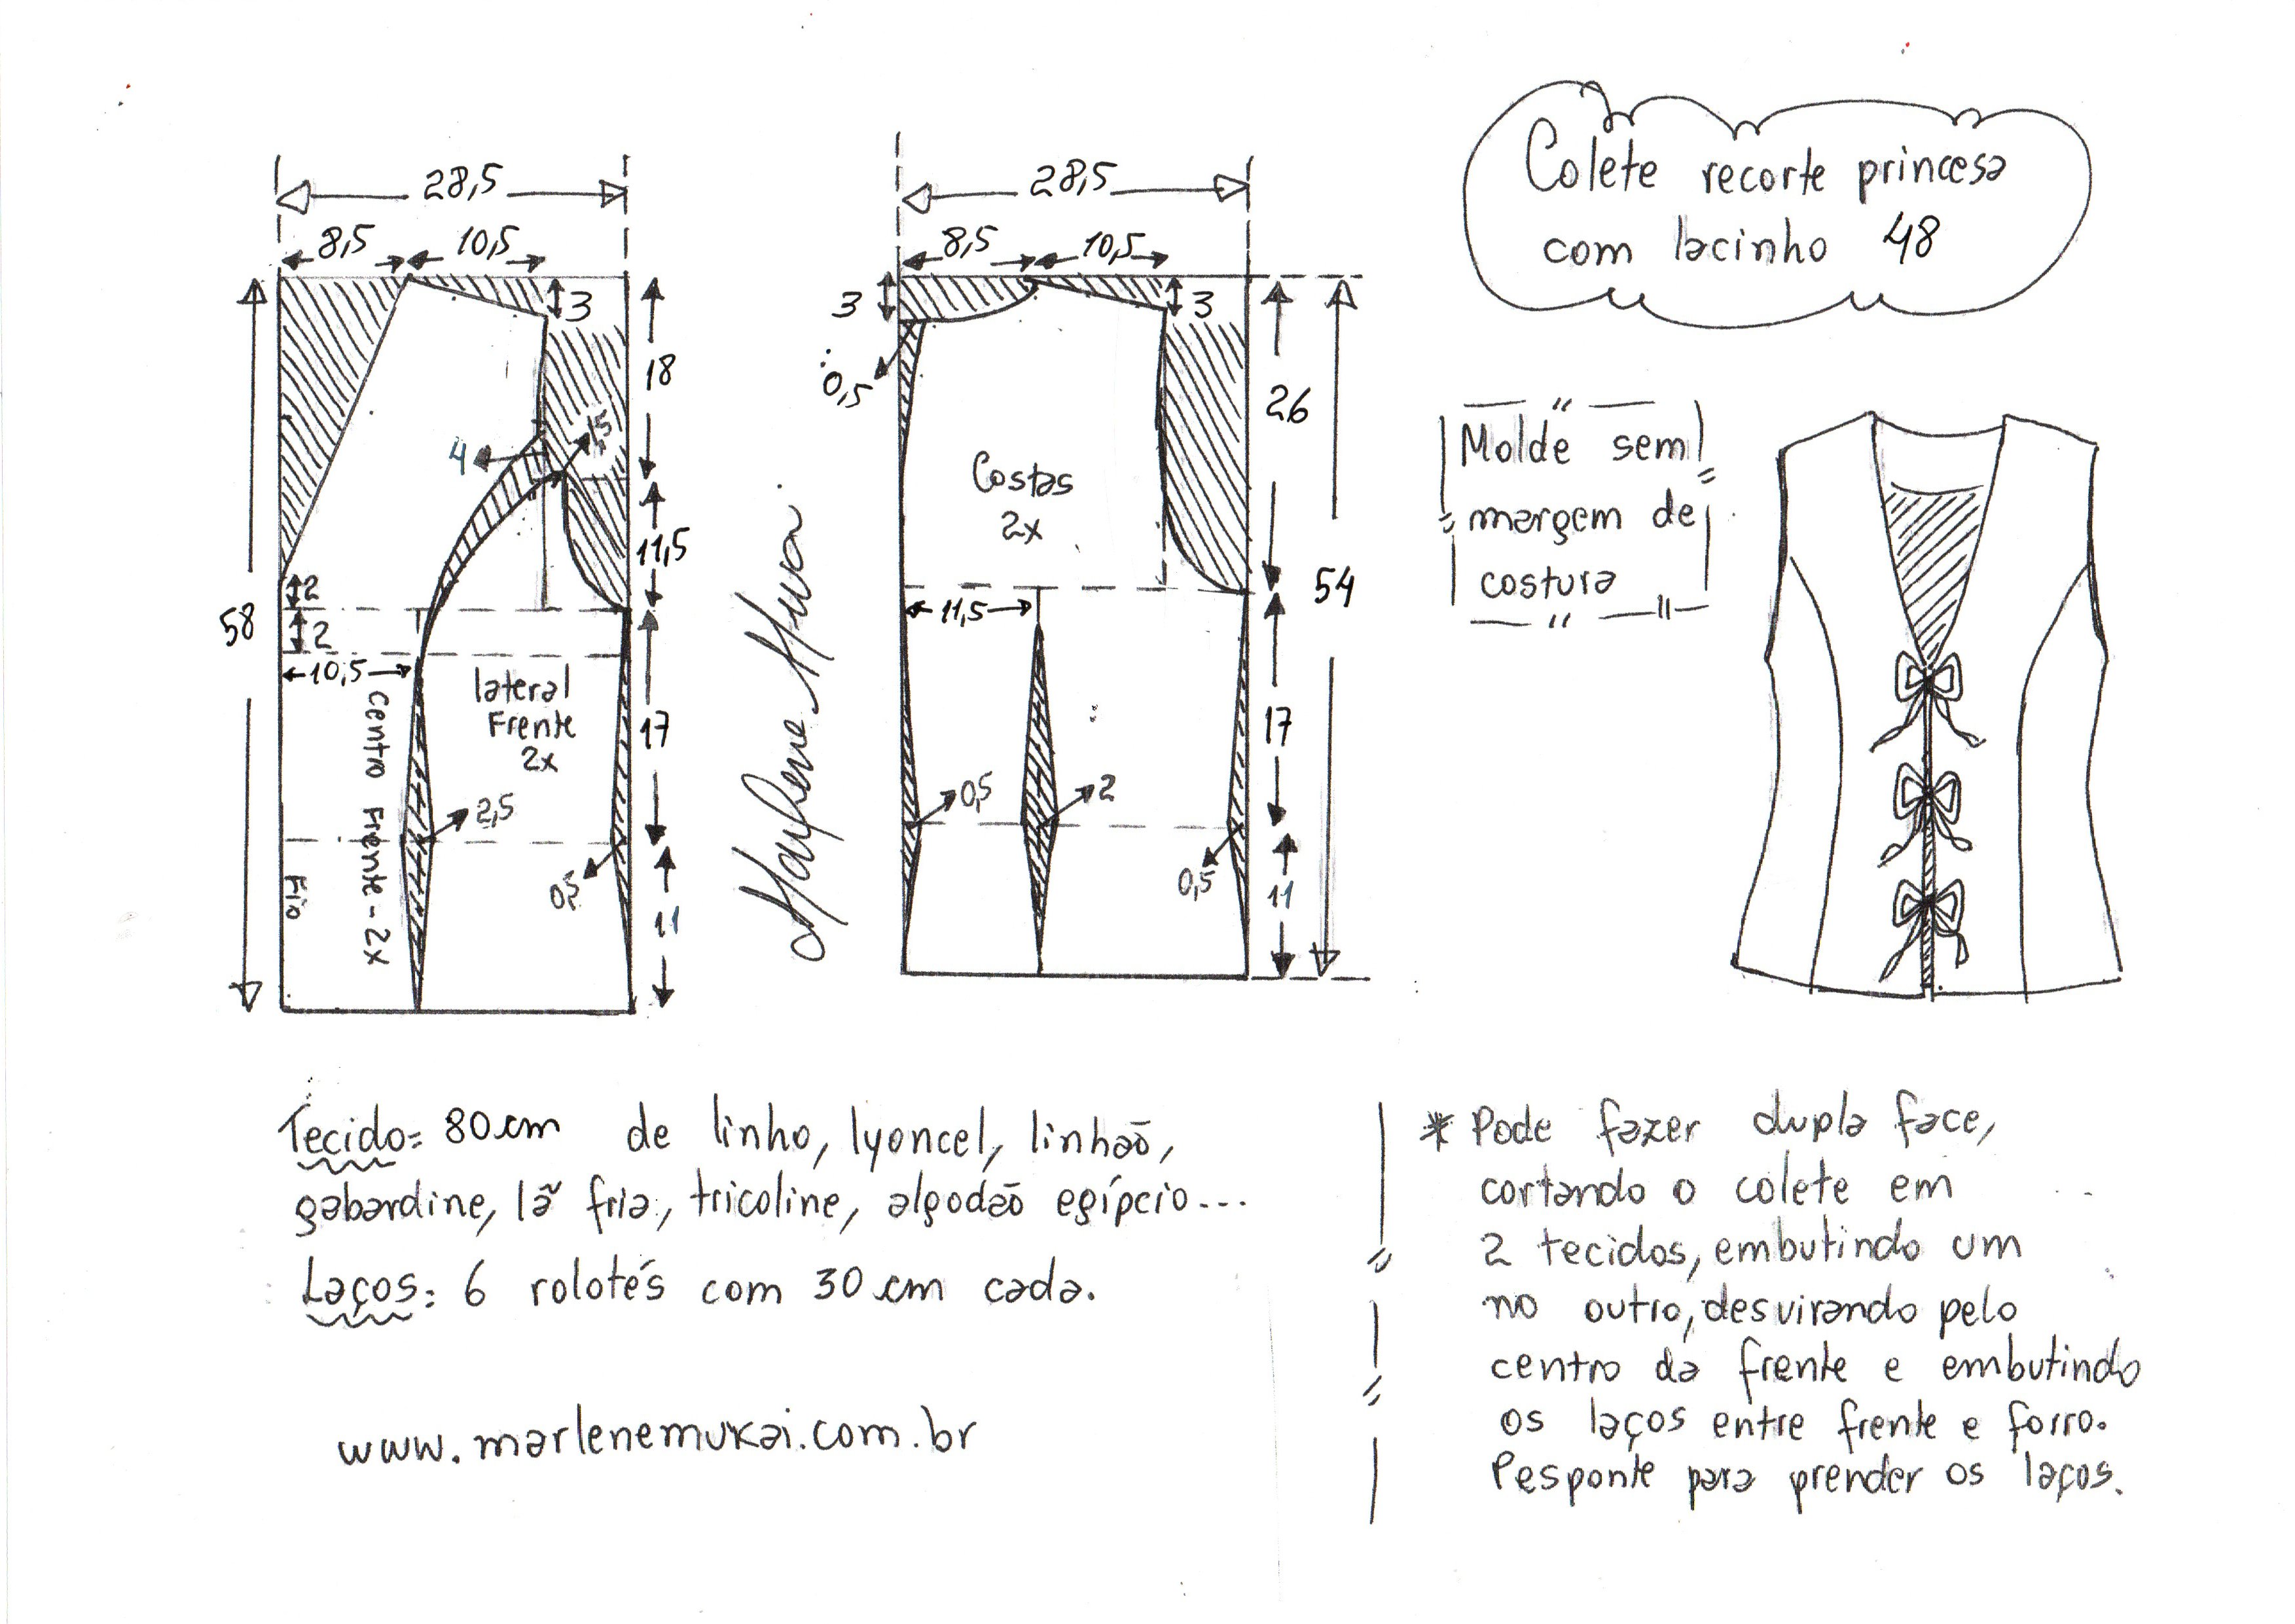 Colete recorte princesa
com lacinho 48
28,5
8,5
10,5
3
18
4
1,5
11,5
2
2
58
10,5
lateral
Frente
2x
Centro Frente - 2x
17
2,5
0,5
Fio
11
28,5
8,5
10,5
3
3
0,5
26
Costas
2x
54
11,5
17
0,5
2
0,5
11
Molde sem
margem de
costura
Tecido= 80 cm de linho, lyoncel, linhão,
gabardine, lã fria, tricoline, algodão egípcio...
Laços: 6 rolotés com 30 cm cada.
www.marlenemukai.com.br
* Pode fazer dupla face,
cortando o colete em
2 tecidos, embutindo um
no outro, desvirando pelo
centro da frente e embutindo
os laços entre frente e forro.
Pesponte para prender os laços.